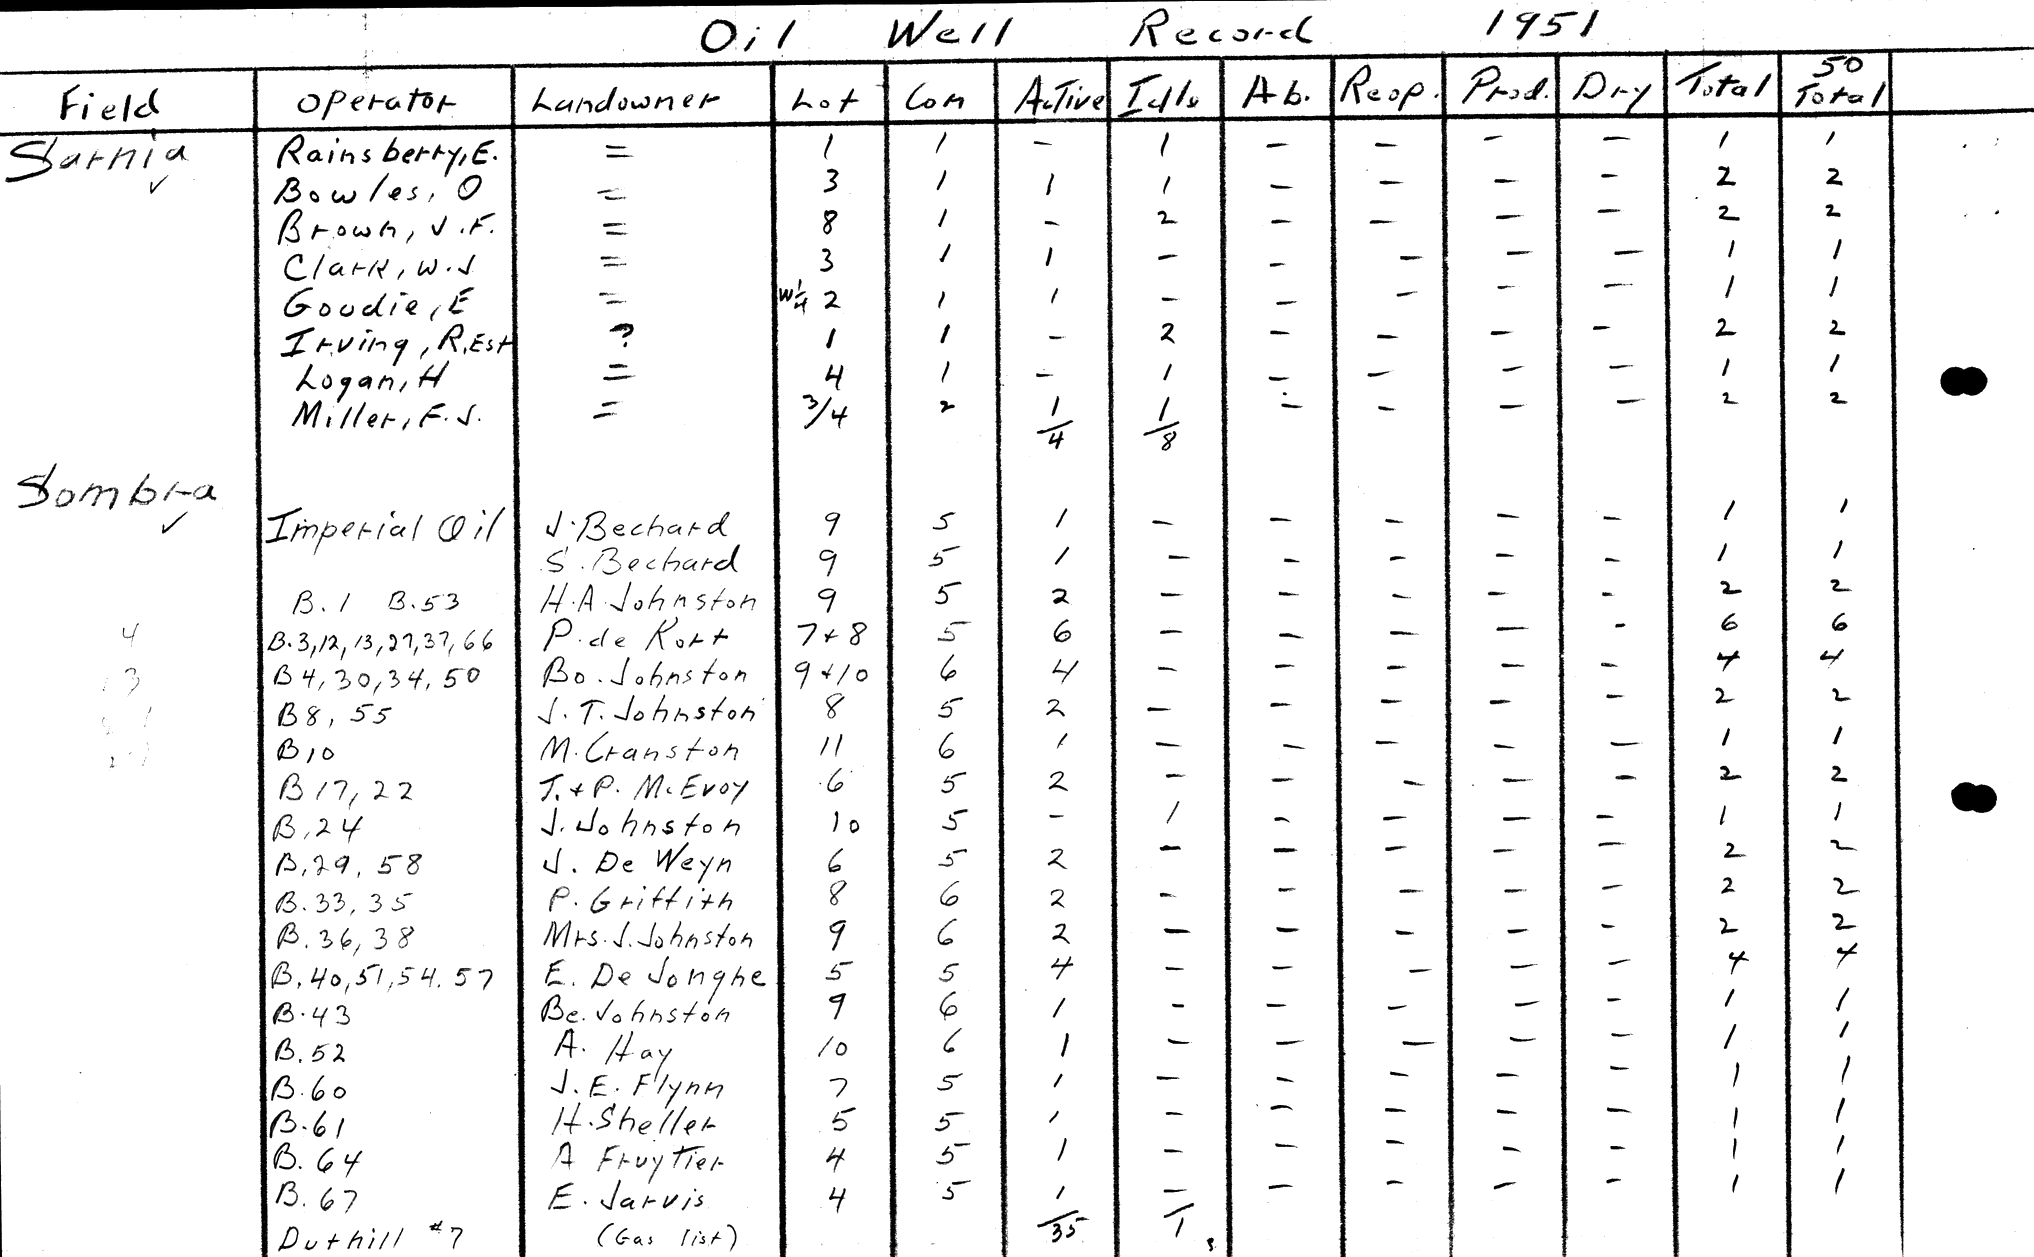 Oil Well Record 1951
Field Operator Landowner Lot Con Active Idle Ab. Reop. Prod. Dry Total 50 Total
Sarnia ✓ Rainsberry, E. = 1 1 - 1 - - - - 1 1
Bowles, O = 3 1 1 1 - - - - 2 2
Brown, J.F. = 8 1 - 2 - - - - 2 2
Clark, W.J = 3 1 1 - - - - - 1 1
Goudie, E = W¼ 2 1 1 - - - - - 1 1
Irving, R, Est ? 1 1 - 2 - - - - 2 2
Logan, H = 4 1 - 1 - - - - 1 1
Miller, F.J. = 3/4 2 1 1 - - - - 2 2
4 8
Sombra ✓
Imperial Oil J. Bechard 9 5 1 - - - - - 1 1
S. Bechard 9 5 1 - - - - - 1 1
B.1 B.53 H.A. Johnston 9 5 2 - - - - - 2 2
4 B.3,12,13,27,37,66 P. de Kort 7+8 5 6 - - - - - 6 6
3 B4,30,34,50 Bo. Johnston 9+10 6 4 - - - - - 4 4
B8, 55 J.T. Johnston 8 5 2 - - - - - 2 2
B10 M. Cranston 11 6 1 - - - - - 1 1
B17, 22 T.+P. McEvoy 6 5 2 - - - - - 2 2
B.24 J. Johnston 10 5 - 1 - - - - 1 1
B.29, 58 J. De Weyn 6 5 2 - - - - - 2 2
B.33, 35 P. Griffith 8 6 2 - - - - - 2 2
B.36, 38 Mrs. J. Johnston 9 6 2 - - - - - 2 2
B.40,51,54.57 E. De Jonghe 5 5 4 - - - - - 4 4
B.43 Be. Johnston 9 6 1 - - - - - 1 1
B.52 A. Hay 10 6 1 - - - - - 1 1
B.60 J.E. Flynn 7 5 1 - - - - - 1 1
B.61 H. Sheller 5 5 1 - - - - - 1 1
B.64 A Fruytier 4 5 1 - - - - - 1 1
B.67 E. Jarvis 4 5 1 - - - - - 1 1
Duthill #7 (Gas list) 35 1